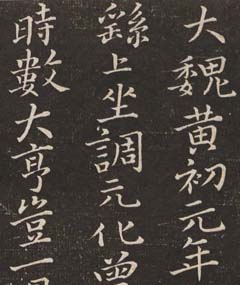 大魏黃初元年
繇上坐調元化曾
時數大亨豈一